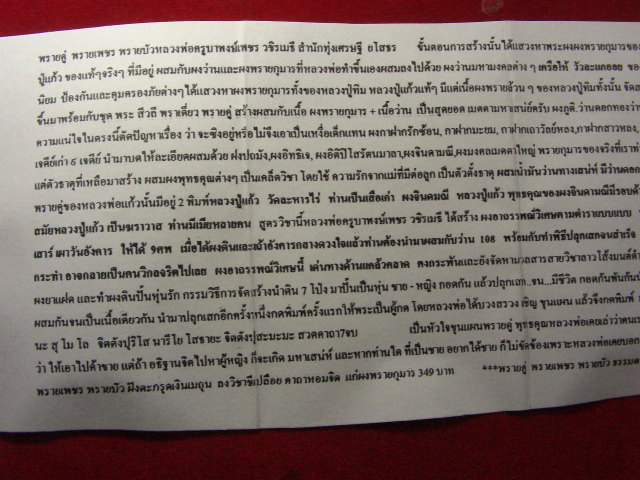 พรายคู่ พรายเพชร พรายบัวหลวงพ่อครูบาพงษ์เพชร วชิรเมธี สำนักทุ่งเศรษฐี อโสธร ขั้นตอนการสร้างนั้นได้แสวงหาพระผงผงพรายกุมารของ
ปู่แก้ว ของแท้ๆจริงๆ ที่มีอยู่ ผสมกับผงว่านและผงพรายกุมารที่หลวงพ่อทำขึ้นเองผสมลงไปด้วย ผงว่านมหามงคลต่าง ๆ เครือให้ วัวละแกออย ของ
นิยม ป้องกันและคุมครองภัยต่างๆได้แสวงหาผงพรายกุมารทั้งของหลวงปู่ทิม หลวงปู่แก้วแท้ๆ มีแต่เนื้อผงพรายล้วน ๆ ของหลวงปู่ทิมทั้งนั้น จัดส
ขึ้นมาพร้อมกับชุด พระ สีวลี พราเดี่ยว พรายคู่ สร้างผสมกับเนื้อ ผงพรายกุมาร + เนื้อว่าน เป็นสุดยอด เมตตามหาเสน่ห์ครับ ผงภูติ ว่านดอกทองว่า
ความแน่ใจในตรงนี้ตัดปัญหาเรื่อง ว่า จะซึงอยู่หรือไม่จึงเอาเป็นเหงื่อเด็กแทน ผงกาฝากรักซ้อน, กาฝากมะยม, กาฝากเถาวัลย์หลง, กาฝากสาวหลง,
เจดีย์เก่า ๙ เจดีย์ นำมาบดให้ละเอียดผสมด้วย ผงปถมัง,ผงอิทธิเจ, ผงอิติปิโสรัตนมาลา,ผงจินดามณี,ผงมงคลเมตตาใหญ่ พรายกุมารของจริงที่เราทำ
แต่ตัวธาตุที่เหลือมาสร้าง ผสมผงพุทธคุณต่างๆ เป็นเคล็ดวิชา โดยใช้ ความรักจากแม่ที่มีต่อลูก เป็นตัวตั้งธาตุ ผสมน้ำมันว่านทางเสน่ห์ มีว่านดอก
พรายคู่ของหลวงพ่อแก้วนั้นมีอยู่ 2 พิมพ์หลวงปู่แก้ว วัดละหารไร่ ท่านเป็นเสือเก่า ผงจินดามณี หลวงปู่แก้ว พุทธคุณของผงจินดามณีมีรอบด้
สมัยหลวงปู่แก้ว เป็นฆราวาส ท่านมีเมียหลายคน สูตรวิชานี้หลวงพ่อครูบาพงษ์เพชร วชิรเมธี ได้สร้าง ผงอาถรรพณ์วิเศษตามตำราแบบแบบ
เสาร์ เผาวันอังคาร ให้ได้ 9ศพ เมื่อได้ผงดินและเถ้าอังคารกลางดวงใจแล้วท่านต้องนำมาผสมกับว่าน 108 พร้อมกับทำพิธีปลุกเสกจนสำเร็จ
กระทำ อาจกลายเป็นคนวิกลจริตไปเลย ผงอาถรรพณ์วิเศษนี้ เด่นทางด้านแคล้วคลาด คงกระพันและยังจัดหามวลสารสายวิชาลาวโส้งมนต์ดำ
ผงยาแฝด และทำผงดินปั้นหุ่นรัก กรรมวิธีการจัดสร้างนำดิน 7 โป่ง มาปั้นเป็นหุ่น ชาย - หญิง กอดกัน แล้ว ปลุกเสก..จน...มีชีวิต กอดกันพันกันท
ผสมกันจนเป็นเนื้อเดียวกัน นำมาปลุกเสกอีกครั้งหนึ่งกดพิมพ์ครั้งแรกให้พระเป็นผู้กด โดยหลวงพ่อได้บวงสรวง เชิญ ขุนแผน แล้วจึงกดพิมพ์
นะ สุ โม โล จิตตังปุริโส นารีโย โสธายะ จิตตังปุสะมะมะ สวดคาถา7จบ เป็นหัวใจขุนแผนพรายคู่ พุทธคุณหลวงพ่อเคยเล่าว่าคนเร
ว่า ให้เอาไปค้าขาย แต่ถ้า อธิฐานจิตไปหาผู้หญิง ก็จะเกิด มหาเสน่ห์ และหากท่านใด ที่เป็นชาย อยากได้ชาย ก็ไม่ขัดข้องเพราะหลวงพ่อเคยบอก
พรายเพชร พรายบัว ฝังตะกรุดเงินเมถุน ลงวิชาชีเปลือย คาถาหอมจิต แก่ผงพรายกุมาร 349 บาท ***พรายคู่ พรายเพชร พรายบัว ธรรมด